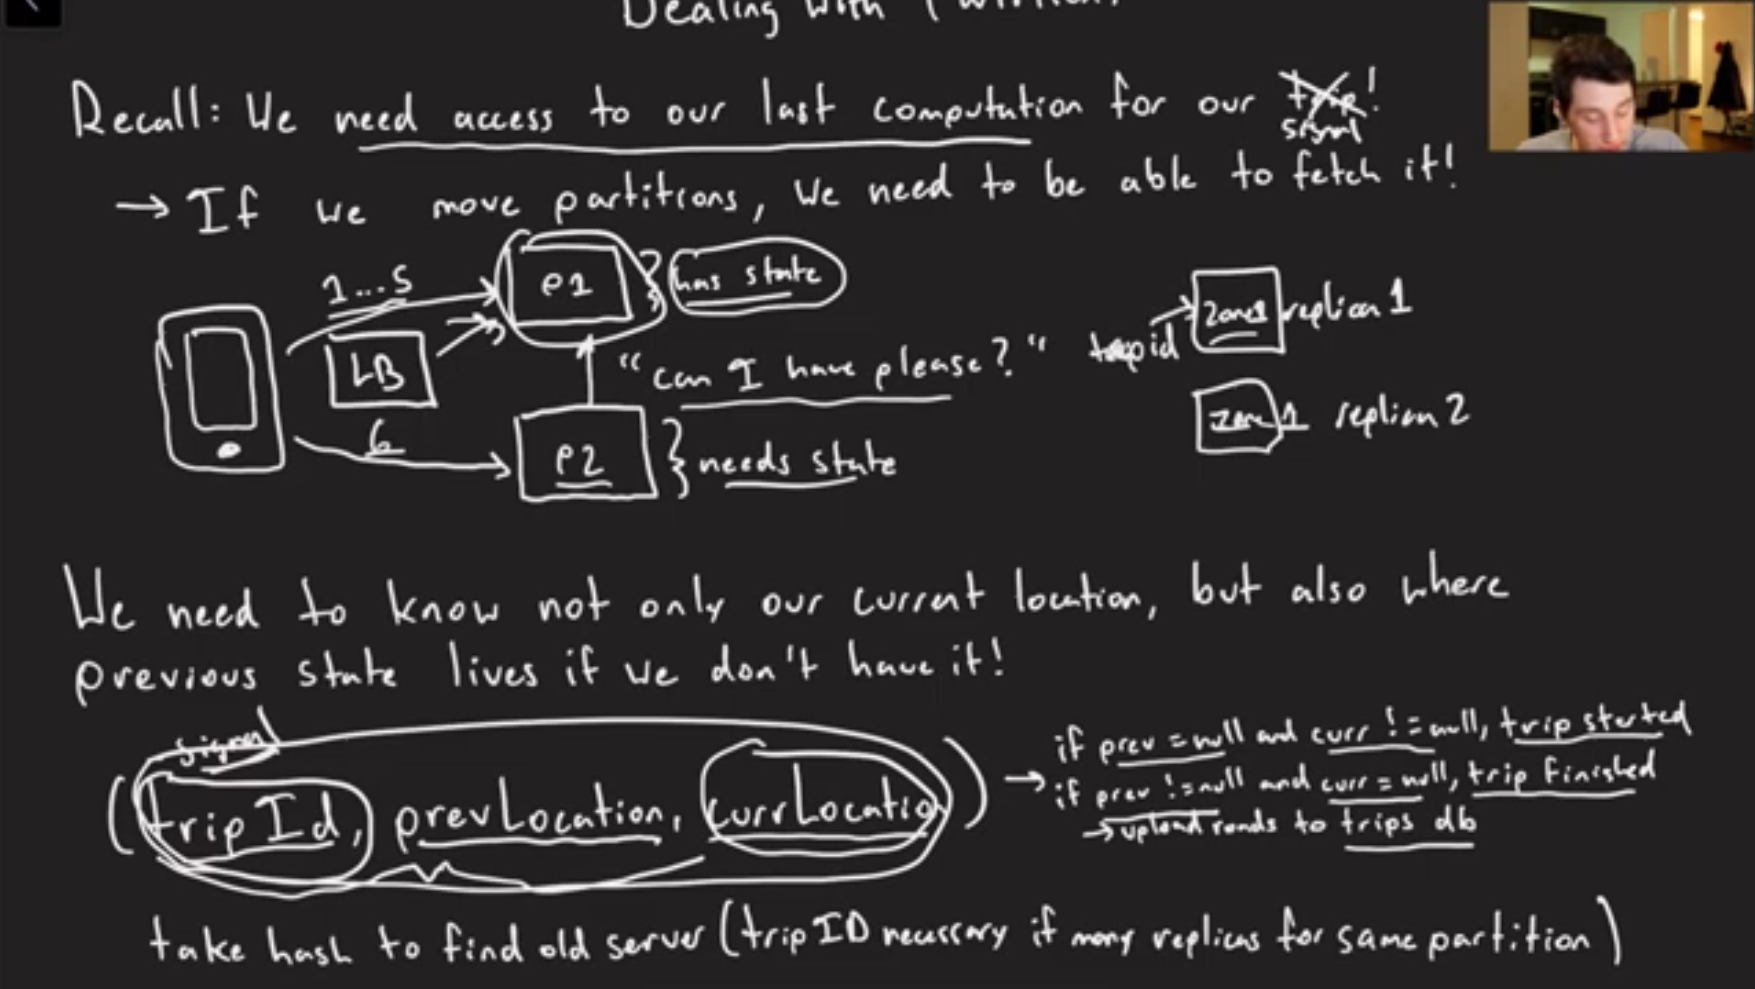 Dealing with
Recall: We need access to our last computation for our trip!
signal
→ If we move partitions, we need to be able to fetch it!
1...5
P1
has state
LB
"can I have please?"
6
P2
needs state
trip id
Zone 1 replica 1
Zone 1 replica 2
We need to know not only our current location, but also where
previous state lives if we don't have it!
signal
(tripId, prevLocation, currLocatio)
→ if prev = null and curr != null, trip started
if prev != null and curr = null, trip finished
→ upload roads to trips db
take hash to find old server (trip ID necessary if many replicas for same partition)